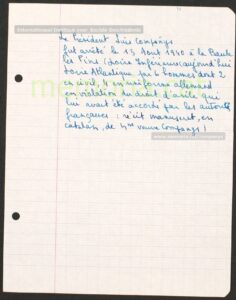 Le Président Luis Companys
fut arrêté le 13 Août 1940 à la Baule
les Pins (Loire Inférieure aujourd'hui
Loire Atlantique par 6 hommes dont 2
en civil, 4 en uniforme allemand
en violation du droit d'asile qui
lui avait été accordé par les autorités
françaises : récit manuscrit, en
catalan, de Mme veuve Companys !